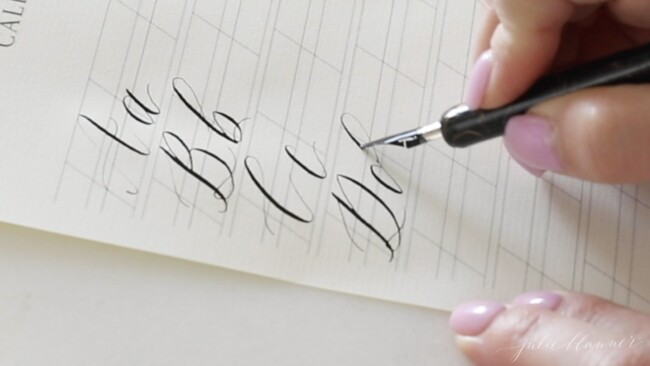 Aa
Bb
Cc
Dd
julie blanner